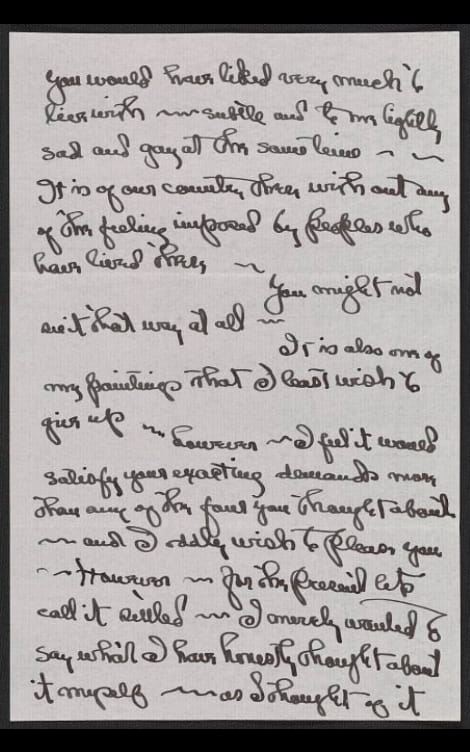 you would have liked very much to
live with ~ subtle and to me lightly
sad and gay at the same time ~ ~
It is of our country there with out any
of the feeling imposed by peoples who
have lived there ~
You might not
see it that way at all ~
It is also one of
my paintings that I least wish to
give up ~ however ~ I feel it would
satisfy your exacting demands more
than any of the four you thought about
~ and I oddly wish to please you
~ However ~ for the present let's
call it settled ~ I merely wanted to
say what I have honestly thought about
it myself ~ as I thought of it